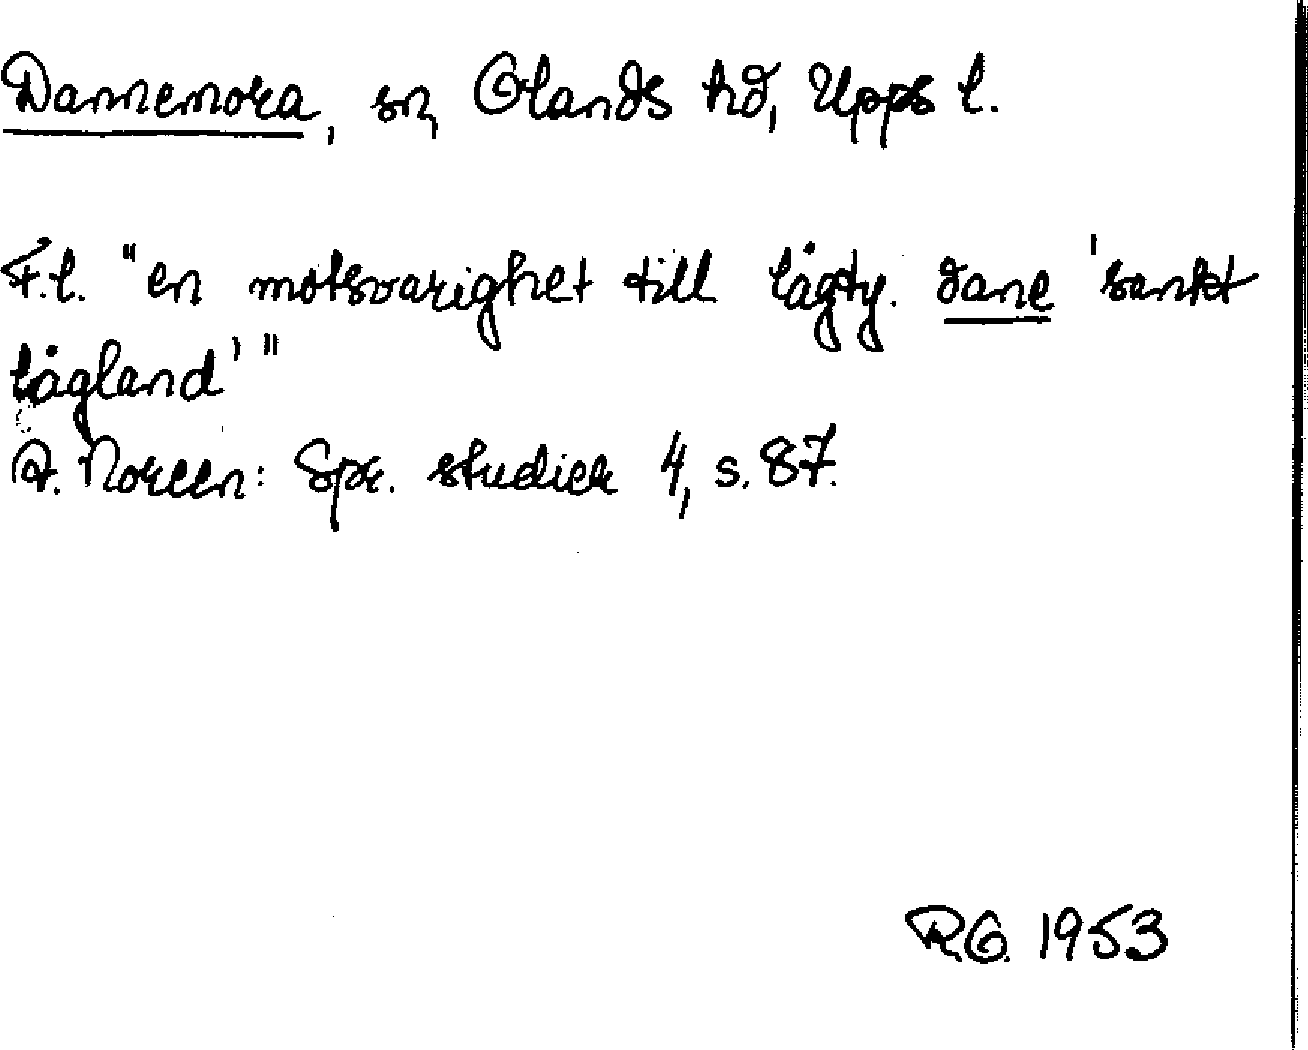 Dannemora, sn, Olands hd, Upps l.
F.l. "en motsvarighet till lågty. dane 'sankt
lågland'"
A. Noreen: Spr. studier 4, s. 87.
RG. 1953